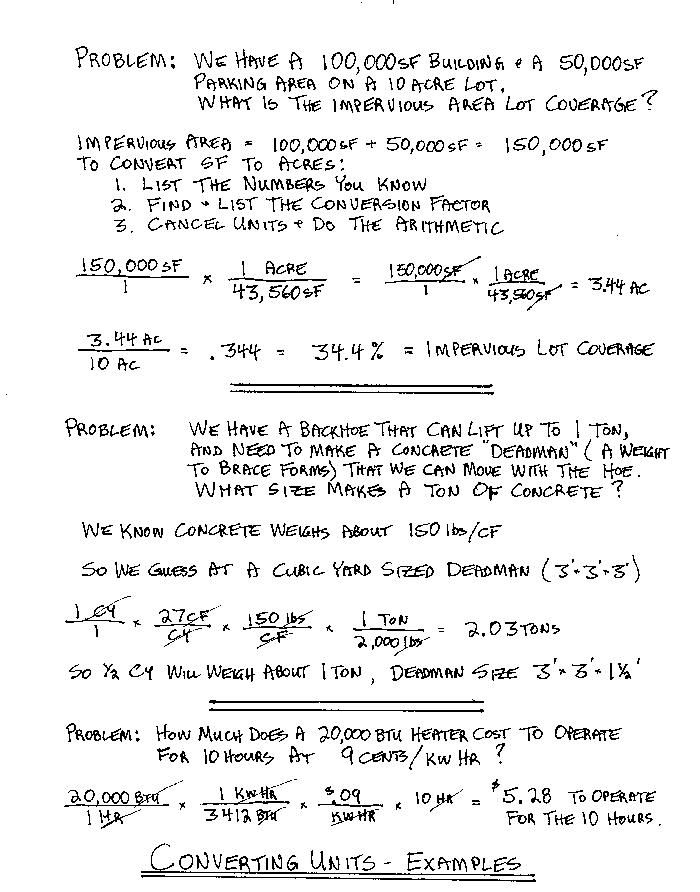 PROBLEM: WE HAVE A 100,000SF BUILDING & A 50,000SF
PARKING AREA ON A 10 ACRE LOT.
WHAT IS THE IMPERVIOUS AREA LOT COVERAGE?
IMPERVIOUS AREA = 100,000SF + 50,000SF = 150,000SF
TO CONVERT SF TO ACRES:
1. LIST THE NUMBERS YOU KNOW
2. FIND & LIST THE CONVERSION FACTOR
3. CANCEL UNITS & DO THE ARITHMETIC
150,000SF/1 × 1 ACRE/43,560SF = 150,000SF/1 × 1 ACRE/43,560SF = 3.44 AC
3.44 AC/10 AC = .344 = 34.4% = IMPERVIOUS LOT COVERAGE
PROBLEM: WE HAVE A BACKHOE THAT CAN LIFT UP TO 1 TON,
AND NEED TO MAKE A CONCRETE "DEADMAN" (A WEIGHT
TO BRACE FORMS) THAT WE CAN MOVE WITH THE HOE.
WHAT SIZE MAKES A TON OF CONCRETE?
WE KNOW CONCRETE WEIGHS ABOUT 150 lbs/CF
SO WE GUESS AT A CUBIC YARD SIZED DEADMAN (3'×3'×3')
1 CY/1 × 27CF/CY × 150 lbs/CF × 1 TON/2,000 lbs = 2.03 TONS
SO ½ CY WILL WEIGH ABOUT 1 TON, DEADMAN SIZE 3'×3'×1½'
PROBLEM: HOW MUCH DOES A 20,000 BTU HEATER COST TO OPERATE
FOR 10 HOURS AT 9 CENTS/KW HR?
20,000 BTU/1 HR × 1 KW HR/3412 BTU × $.09/KW HR × 10 HR = $5.28 TO OPERATE
FOR THE 10 HOURS.
CONVERTING UNITS - EXAMPLES